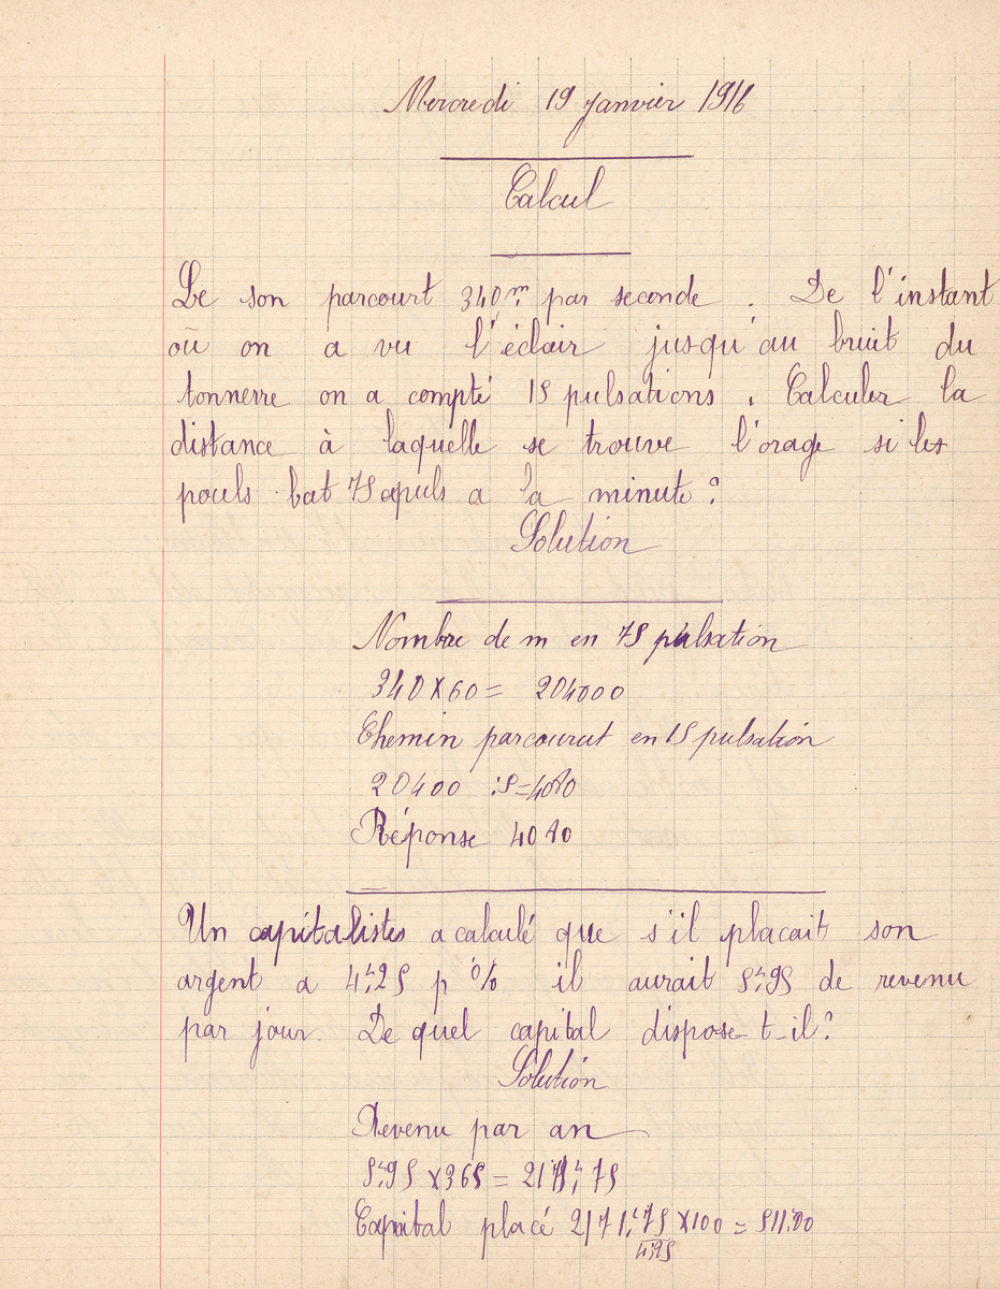 Mercredi 19 janvier 1916
Calcul
Le son parcourt 340m par seconde. De l'instant
où on a vu l'éclair jusqu'au bruit du
tonnerre on a compté 15 pulsations. Calculer la
distance à laquelle se trouve l'orage si les
pouls bat 75 apuls a la minute?
Solution
Nombre de m en 75 pulsation
340 x 60 = 204000
Chemin parcourut en 15 pulsation
20400 : 5 = 4080
Réponse 4080
Un capitalistes a calculé que s'il placait son
argent a 4f,25 p % il aurait 5f,95 de revenu
par jour. De quel capital dispose-t-il?
Solution
Revenu par an
5f,95 x 365 = 2171f,75
Capital placé 2171f,75 x 100 = 51100
4,25